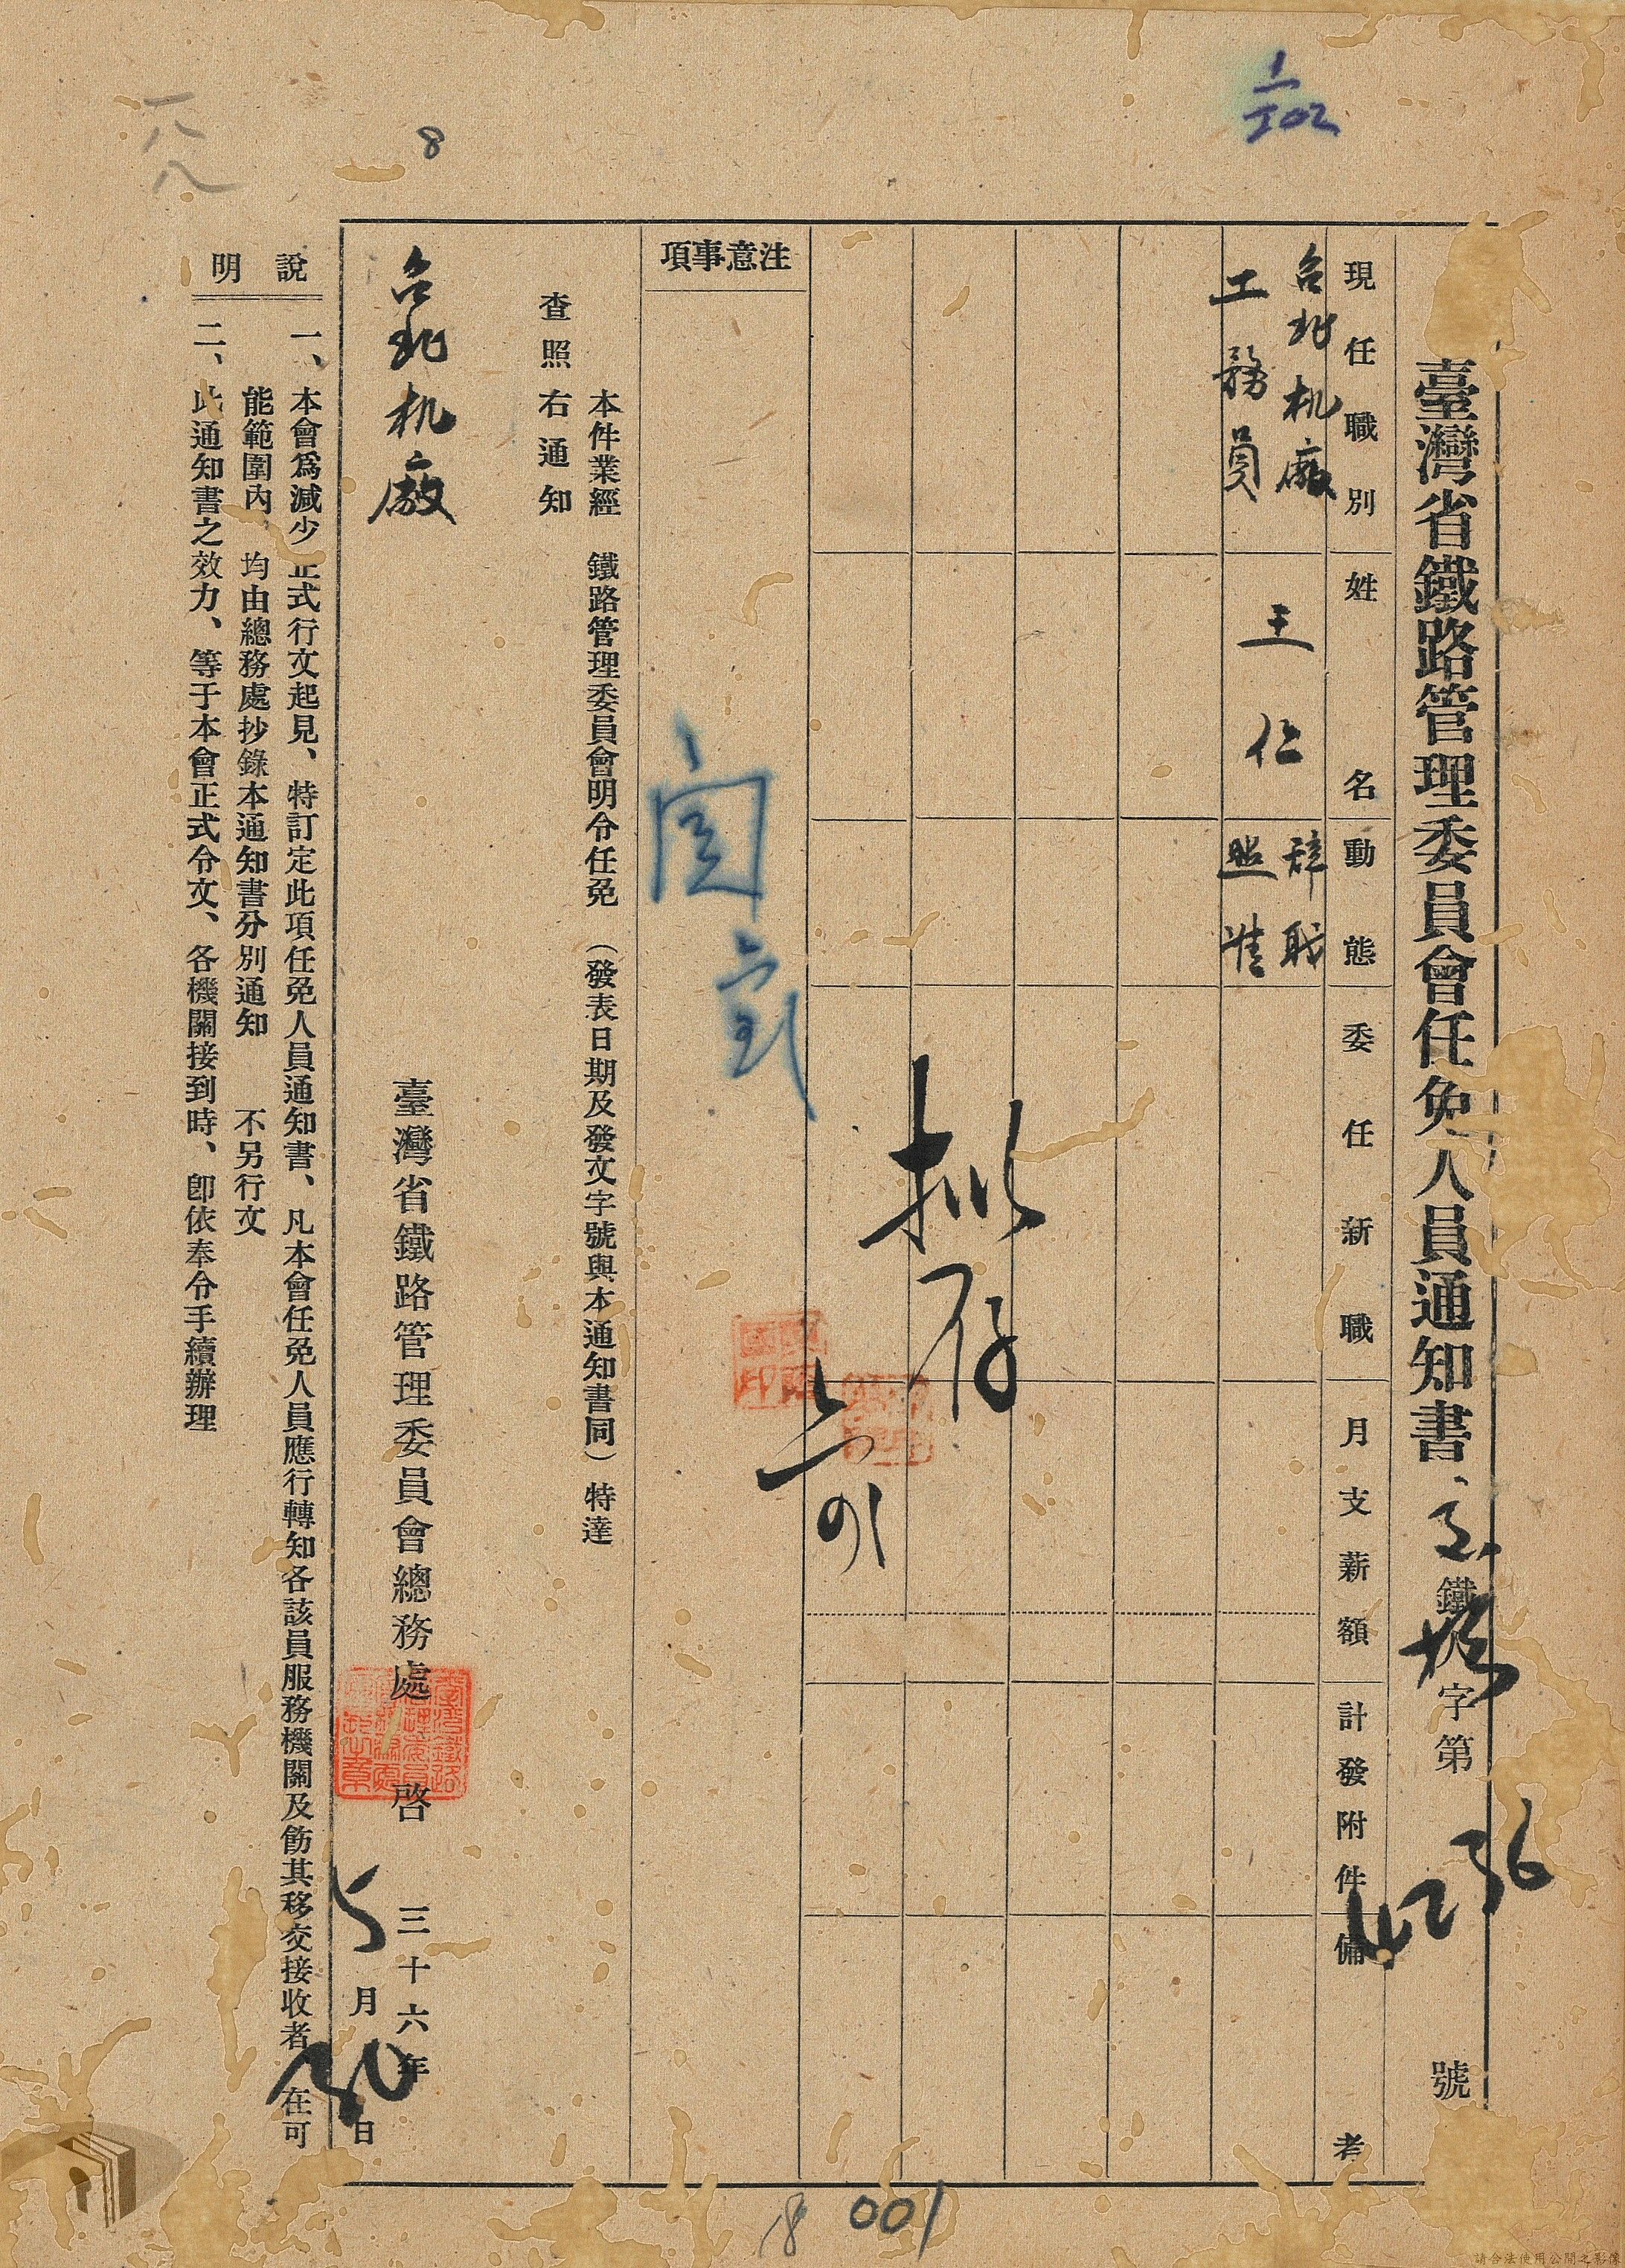 臺灣省鐵路管理委員會任免人員通知書
鐵 字第 號
現任職別 姓名 動態 委任新職 月支薪額 計發附件 備考
台北机廠
工務員
王仁
辞职
照准
批存
注意事項
本件業經 鐵路管理委員會明令任免 (發表日期及發文字號與本通知書同) 特達
查照右通知
台北机廠
臺灣省鐵路管理委員會總務處 啓
三十六年
5月30日
說明
一、本會爲減少正式行文起見、特訂定此項任免人員通知書、凡本會任免人員應行轉知各該員服務機關及飭其移交接收者 在可
能範圍內 均由總務處抄錄本通知書分別通知 不另行文
二、此通知書之效力、等于本會正式令文、各機關接到時、卽依奉令手續辦理
8
一八八
8
001
請合法使用公開之影像